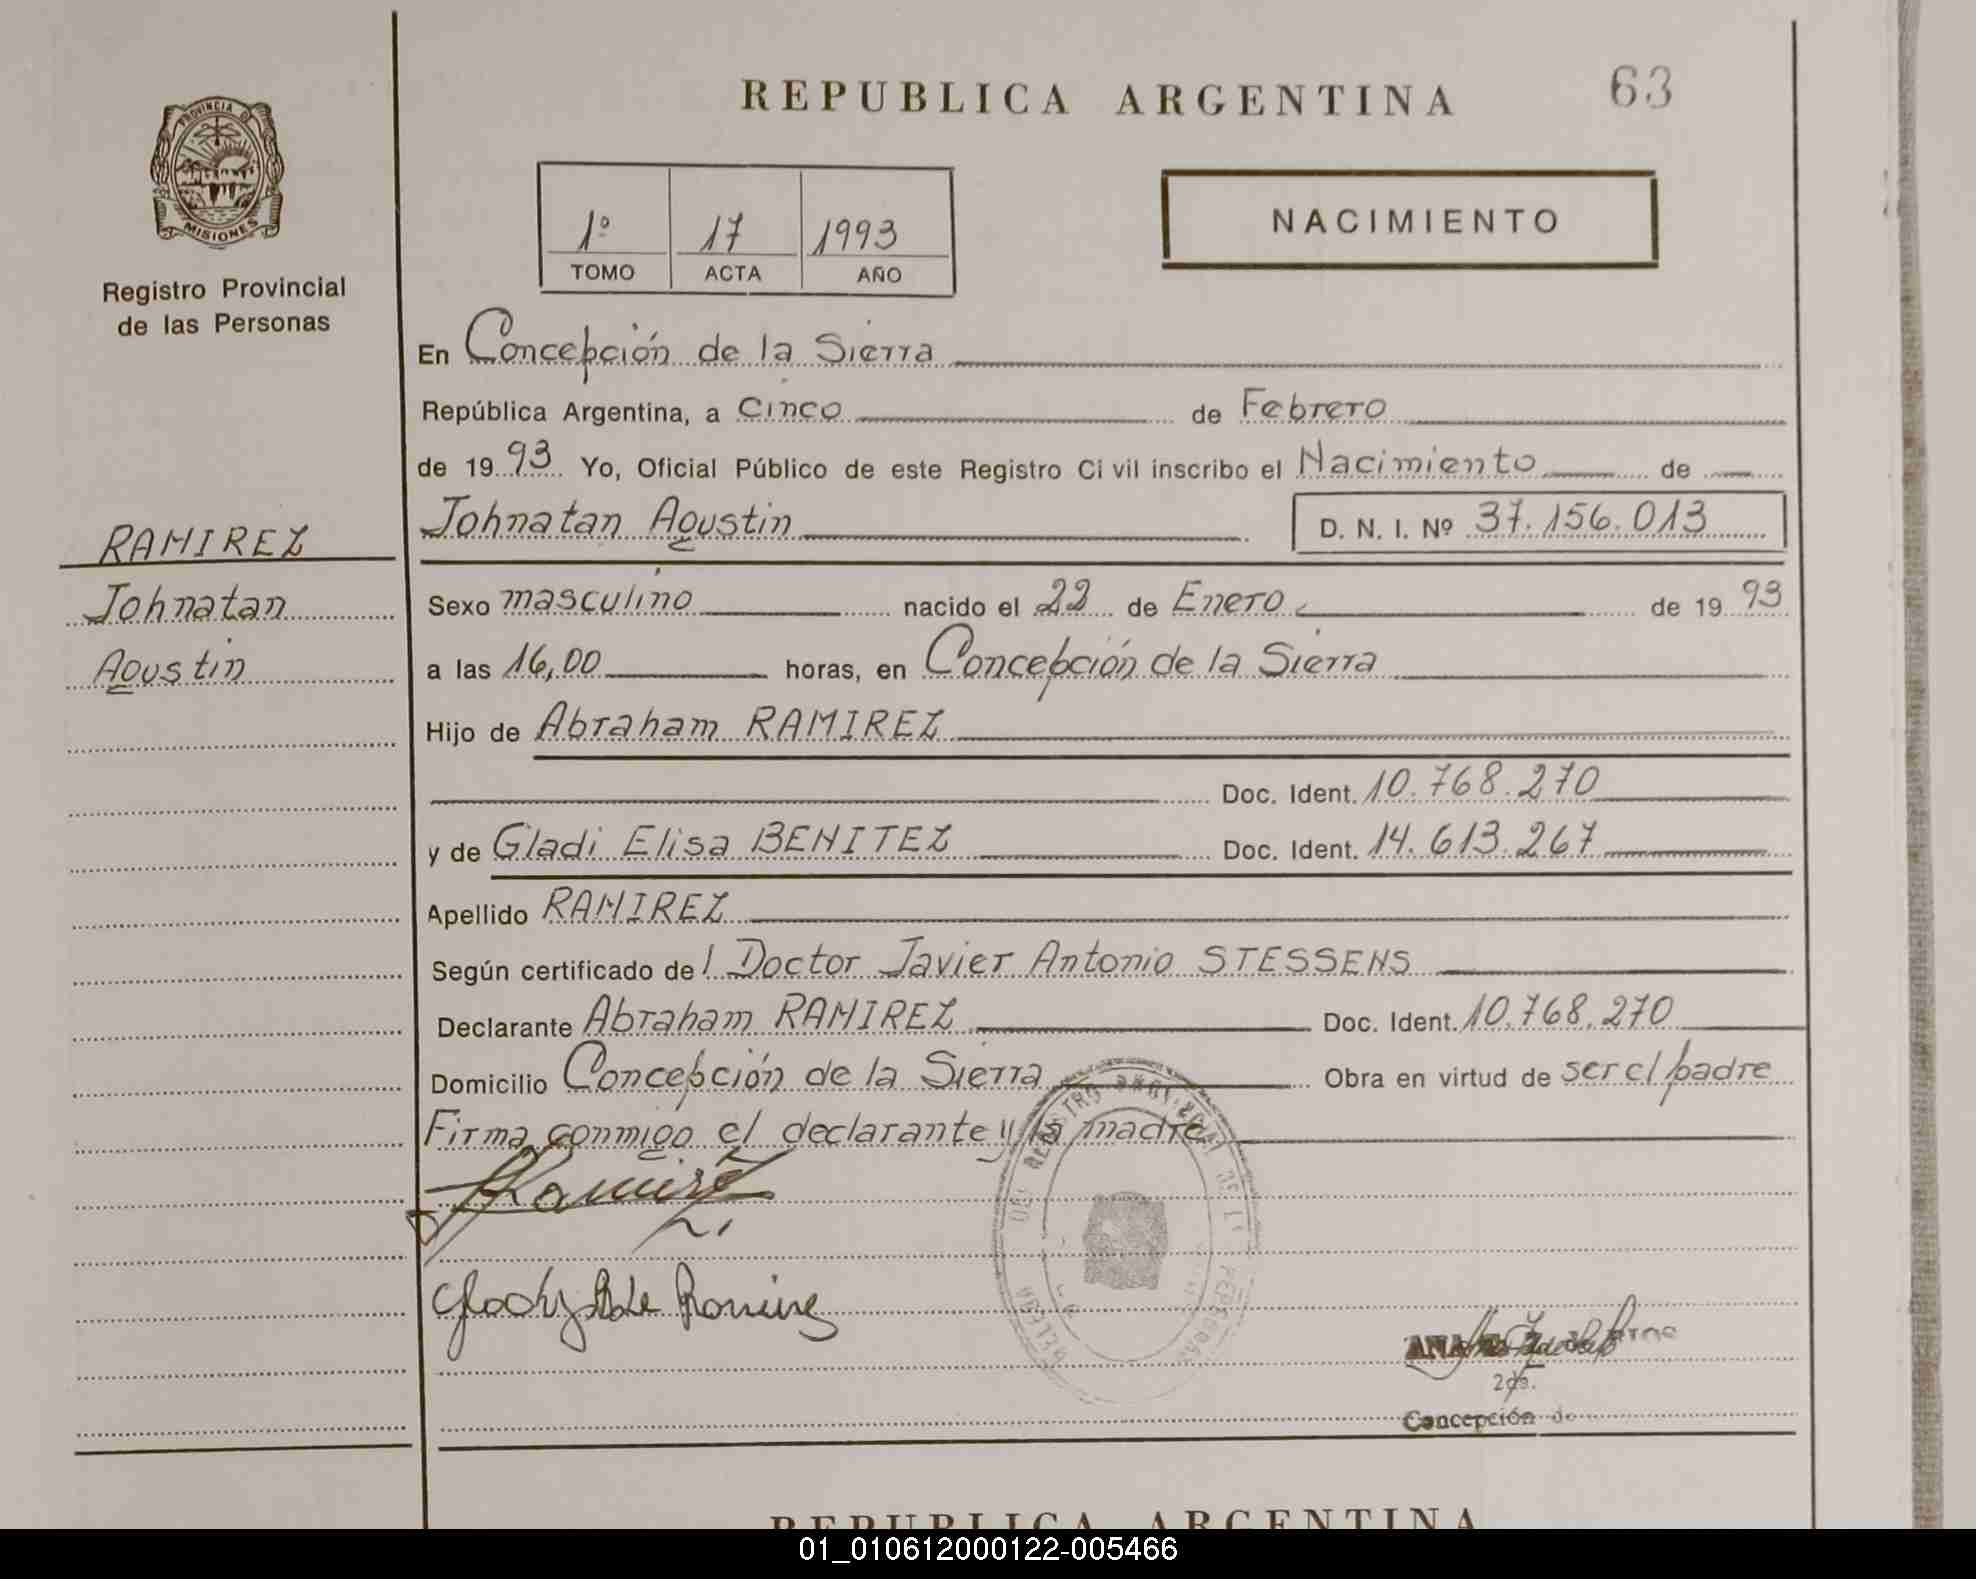 REPUBLICA ARGENTINA
63
PROVINCIA DE
MISIONES
Registro Provincial
de las Personas
1º 17 1993
TOMO ACTA AÑO
NACIMIENTO
En Concepción de la Sierra
República Argentina, a Cinco de Febrero
de 1993 Yo, Oficial Público de este Registro Civil inscribo el Nacimiento de
Johnatan Agustin D. N. I. Nº 37.156.013
RAMIREZ
Johnatan
Agustin
Sexo masculino nacido el 22 de Enero de 1993
a las 16,00 horas, en Concepción de la Sierra
Hijo de Abraham RAMIREZ
Doc. Ident. 10.768.270
y de Gladi Elisa BENITEZ Doc. Ident. 14.613.267
Apellido RAMIREZ
Según certificado del Doctor Javier Antonio STESSENS
Declarante Abraham RAMIREZ Doc. Ident. 10.768.270
Domicilio Concepción de la Sierra Obra en virtud de ser el padre
Firma conmigo el declarante y la madre
Ramirez
de Ramirez
ANA
2da.
Concepción de
REPUBLICA ARGENTINA
01_010612000122-005466